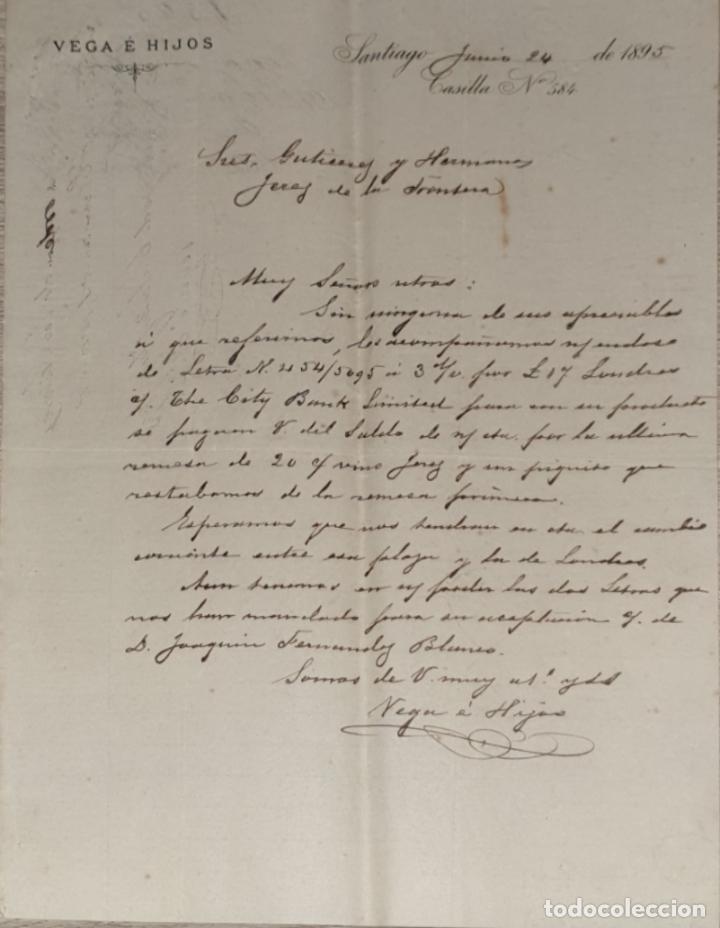 VEGA É HIJOS
Santiago Junio 24 de 1895
Casilla No. 584
Sres. Gutierrez y Hermanos
Jerez de la Frontera
Muy Señores ntros:
Sin ninguna de sus apreciables
á que referirnos, les acompañamos
de Letra N. 454/5095 á 3 d/v. por £17 Londres
c/. The City Bank Limited para con su producto
se paguen V. del Saldo de n/ cta. por la ultima
remesa de 20 c/ vino Jerez y un piquito que
restabamos de la remesa primera.
Esperamos que nos tendran en cta. el cambio
corriente entre esa plaza y la de Londres.
Aun tenemos en n/ poder las dos Letras que
nos han mandado para su aceptacion c/. de
D. Joaquin Fernandez Blanco.
Somos de V. muy at.º y ss
Vega é Hijos
todocoleccion